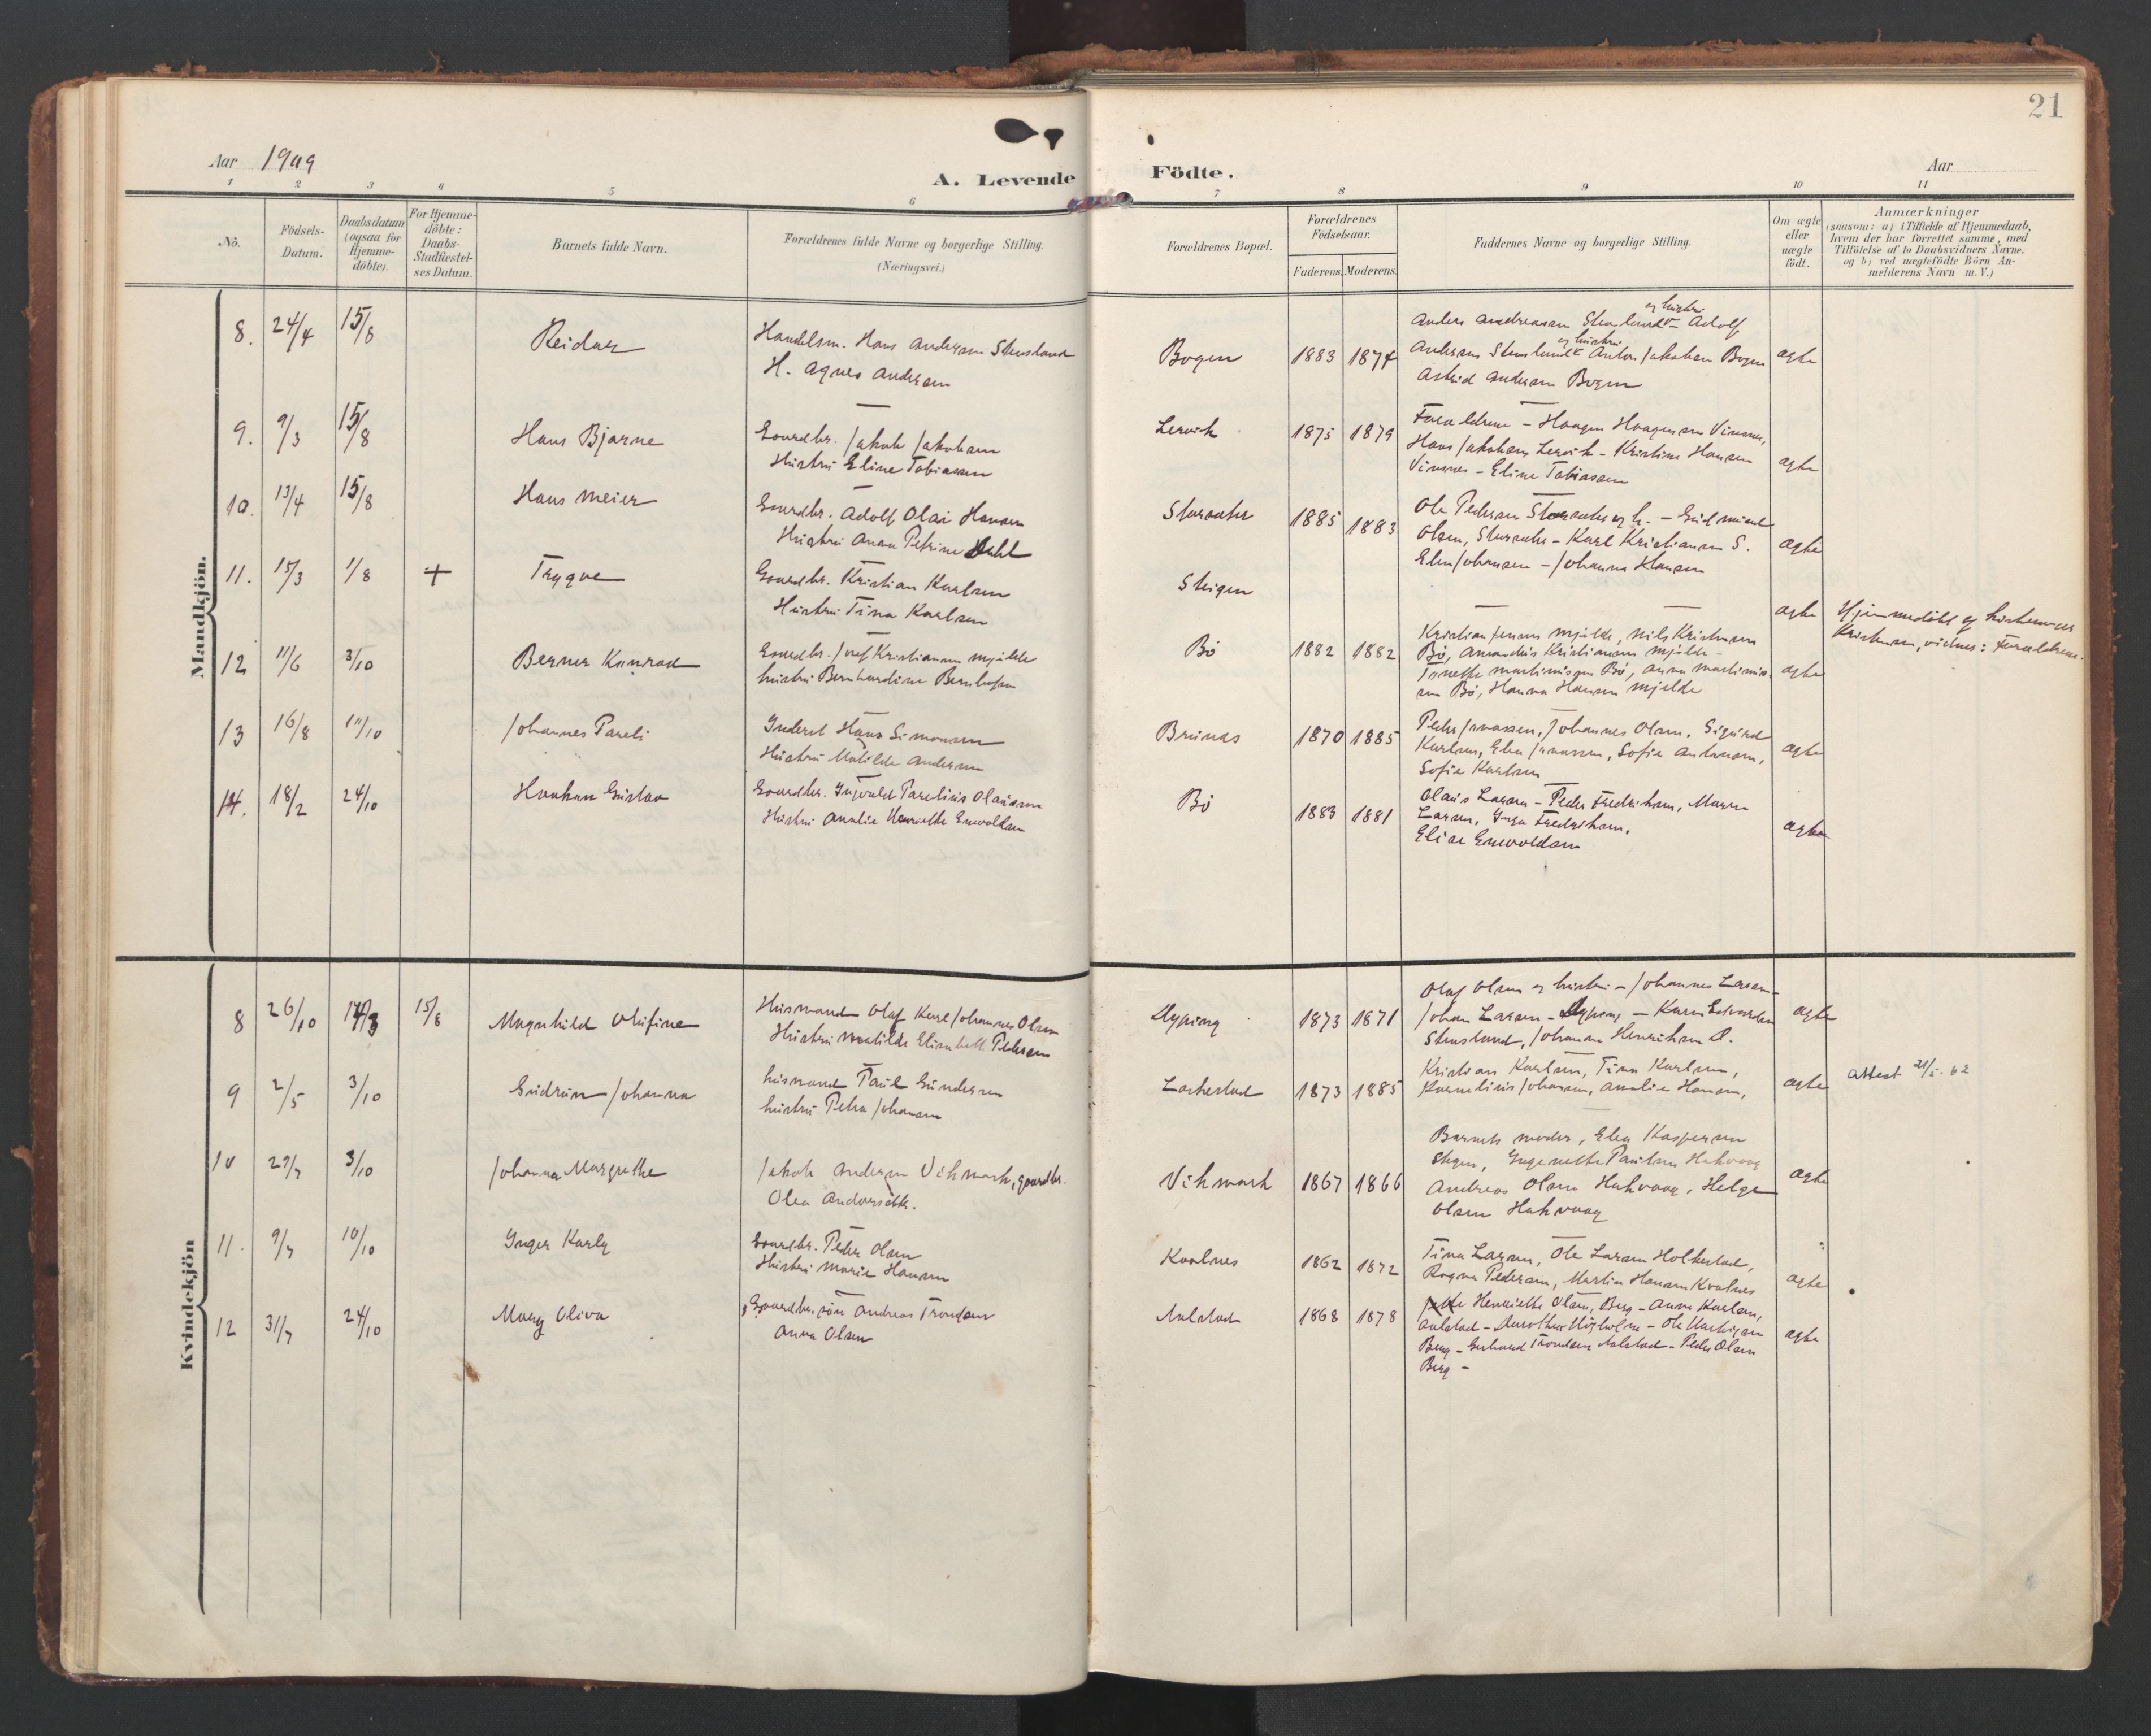 21
Aar 1909
A. Levende Födte.
Aar
1 2 3 4 5 6 7 8 9 10 11
Nö.
Födsels-
Datum.
Daabsdatum
(ogsaa for
Hjemme-
döbte).
For Hjemme-
döbte:
Daabs-
Stadfæstel-
ses Datum.
Barnets fulde Navn.
Forældrenes fulde Navne og borgerlige Stilling.
(Næringsvei.)
Forældrenes Bopæl.
Forældrenes
Födselsaar.
Faderens. Moderens.
Faddernes Navne og borgerlige Stilling.
Om ægte
eller
uægte
födt.
Anmærkninger
(saasom: a) i Tilfælde af Hjemmedaab,
hvem der har forrettet samme, med
Tilföielse af to Daabsvidners Navne.
og b) ved uægtefödte Börn An-
melderens Navn m. V.)
Mandkjön.
8. 24/4 15/8
Reidar
Handelsm. Hans Andersen Stensland
H. Agnes Andersen
Bogen 1883 1874
og hustru
Anders Andreassen Stensland - Adolf
og hustru
Andersen Stensland - Anton Jakobsen Bogen
Astrid Andersen Bogen
ægte
9. 9/3 15/8
Hans Bjarne
Gaardbr. Jakob Jakobsen
Hustru Eline Tobiassen
Lervik 1875 1879
Forældrene - Haagen Haagensen Vinnes,
Hans Jakobsen Lervik - Kristine Hansen
Vinnes - Eline Tobiassen
ægte
10. 13/4 15/8
Hans Meier
Gaardbr. Adolf Olai Hansen
Hustru Anna Petrine Dahl
1885 1883
Ole Pedersen
Olsen, - Karl Kristiansen S.
Elen Johansen - Johanna Hansen
ægte
11. 15/3 1/8 +
Trygve
Gaardbr. Kristian Karlsen
Hustru Tina Karlsen
Steigen
ægte
Hjemmedöbt af
Kristensen, vidner: Forældrene.
12 11/6 3/10
Berner Konrad
Gaardbr. Josef Kristiansen Mjelde
hustru Bernhardine Berntsen
Bö 1882 1882
Kristian Jensen Mjelde, Nils Kristensen
Bö, Amandus Kristiansen Mjelde -
Tinette Martinussen Bö, Anna Martinus-
sen Bö, Hanna Hansen Mjelde
ægte
13 16/8 10/10
Johannes Pareli
Inderst Hans Simonsen
Hustru Matilde Andersen
Brunes 1870 1885
Peder Jonassen, Johannes Olsen, Sigurd
Karlsen, Elea Jonassen, Sofie Antonsen,
Sofie Karlsen
ægte
14. 18/2 24/10
Haakon Gustav
Gaardbr. Ingvald Parelius Olaisen
Hustru Analie Henriette Enevoldsen
Bö 1883 1881
Olaus Larsen - Peder Fredriksen, Maren
Larsen, Inga Fredriksen,
Elise Enevoldsen
ægte
Kvindekjön
8 26/10 15/8
Magnhild Olufine
Husmand Olaf Karl Johannes Olsen
Hustru Matilde Elisabeth Pedersen
Dyping 1873 1871
Olaf Olsen og hustru - Johannes Larsen -
Johan Larsen - Dyping - Karen Edvardsen
Stensland, Johanna Henriksen D.
ægte
9 2/5 3/10
Gudrun Johanna
husmand Paul Gundersen
hustru Petra Johansen
Laskestad 1873 1885
Kristian Karlsen, Tina Karlsen,
Kornelius Johansen, Analie Hansen,
ægte
Attest 21/5. 62
10 27/7 3/10
Johanna Margrethe
Jakob Andersen Vikmark, gaardbr.
Olea Andorsdtr.
Vikmark 1867 1866
Barnets moder, Elea Kaspersen
Skogen, Ingenette Paulsen Hakvaag
Andreas Olsen Hakvaag, Helge
Olsen Hakvaag
ægte
11. 9/7 10/10
Inger Karly
Gaardbr. Peder Olsen
Hustru Marie Hansen
Kvalnes 1862 1872
Tina Larsen, Ole Larsen Holkestad,
Ragna Pedersen, Martin Hansen Kvalnes
ægte
12 31/7 24/10
Mary Oliva
Gaardbr. sön Andreas Trondsen
Anna Olsen
Aalstad 1868 1878
Henriette Olsen, Berg - Anna Karlsen,
Aalstad - - Ole
Berg - Gerhard Trondsen Aalstad - Peder Olsen
Berg -
ægte